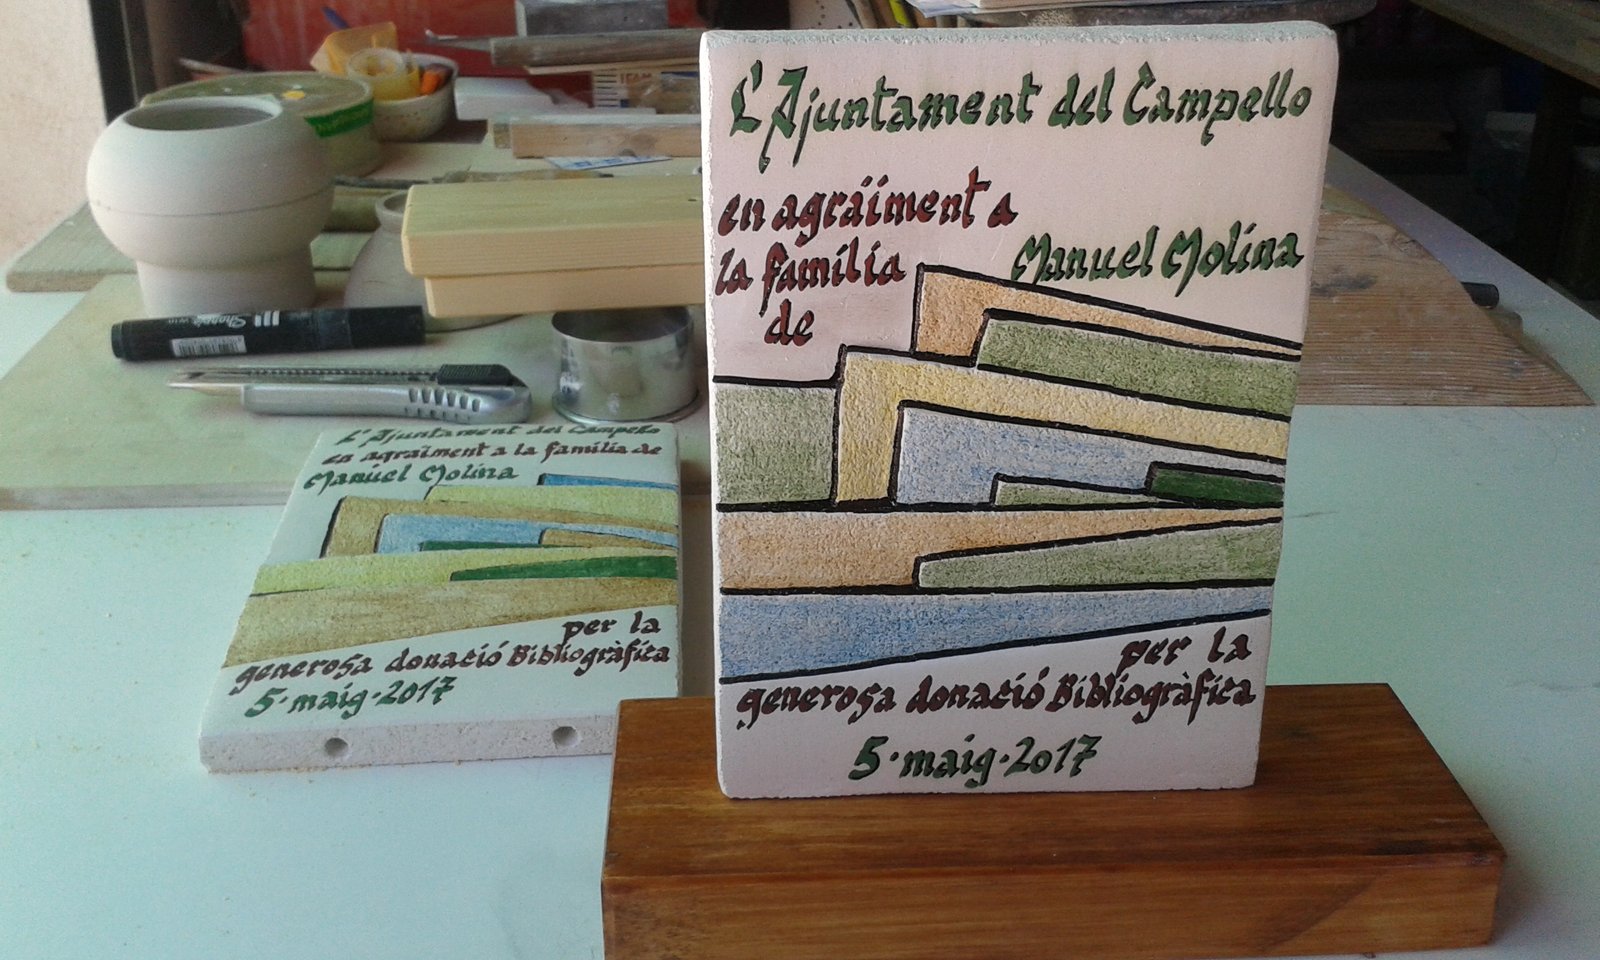 L'Ajuntament del Campello
en agraïment a
la família
de
Manuel Molina
per la
generosa donació Bibliogràfica
5·maig·2017
L'Ajuntament del Campello
en agraïment a la família de
Manuel Molina
per la
generosa donació Bibliogràfica
5·maig·2017